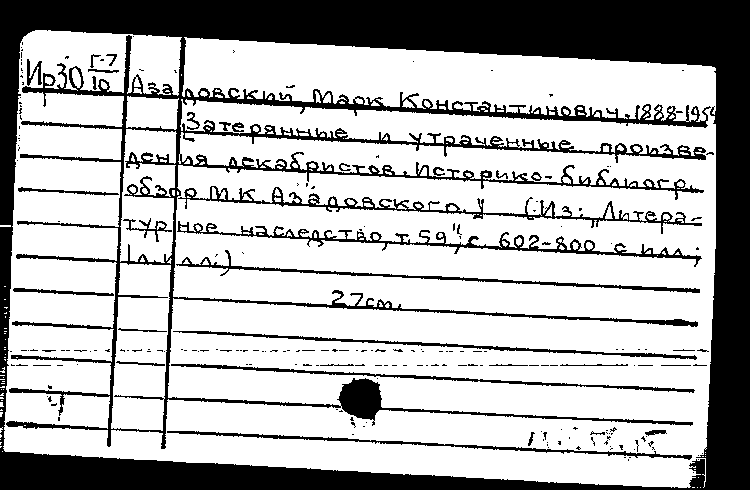 Ир30 Г-7/10 Азадовский, Марк Константинович, 1888-1954
[Затерянные и утраченные произве-
дения декабристов. Историко-библиогр.
обзор М.К. Азадовского.] (Из: „Литера-
турное наследство, т. 59", с. 602-800 с илл.;
1 л. илл.)
27см.